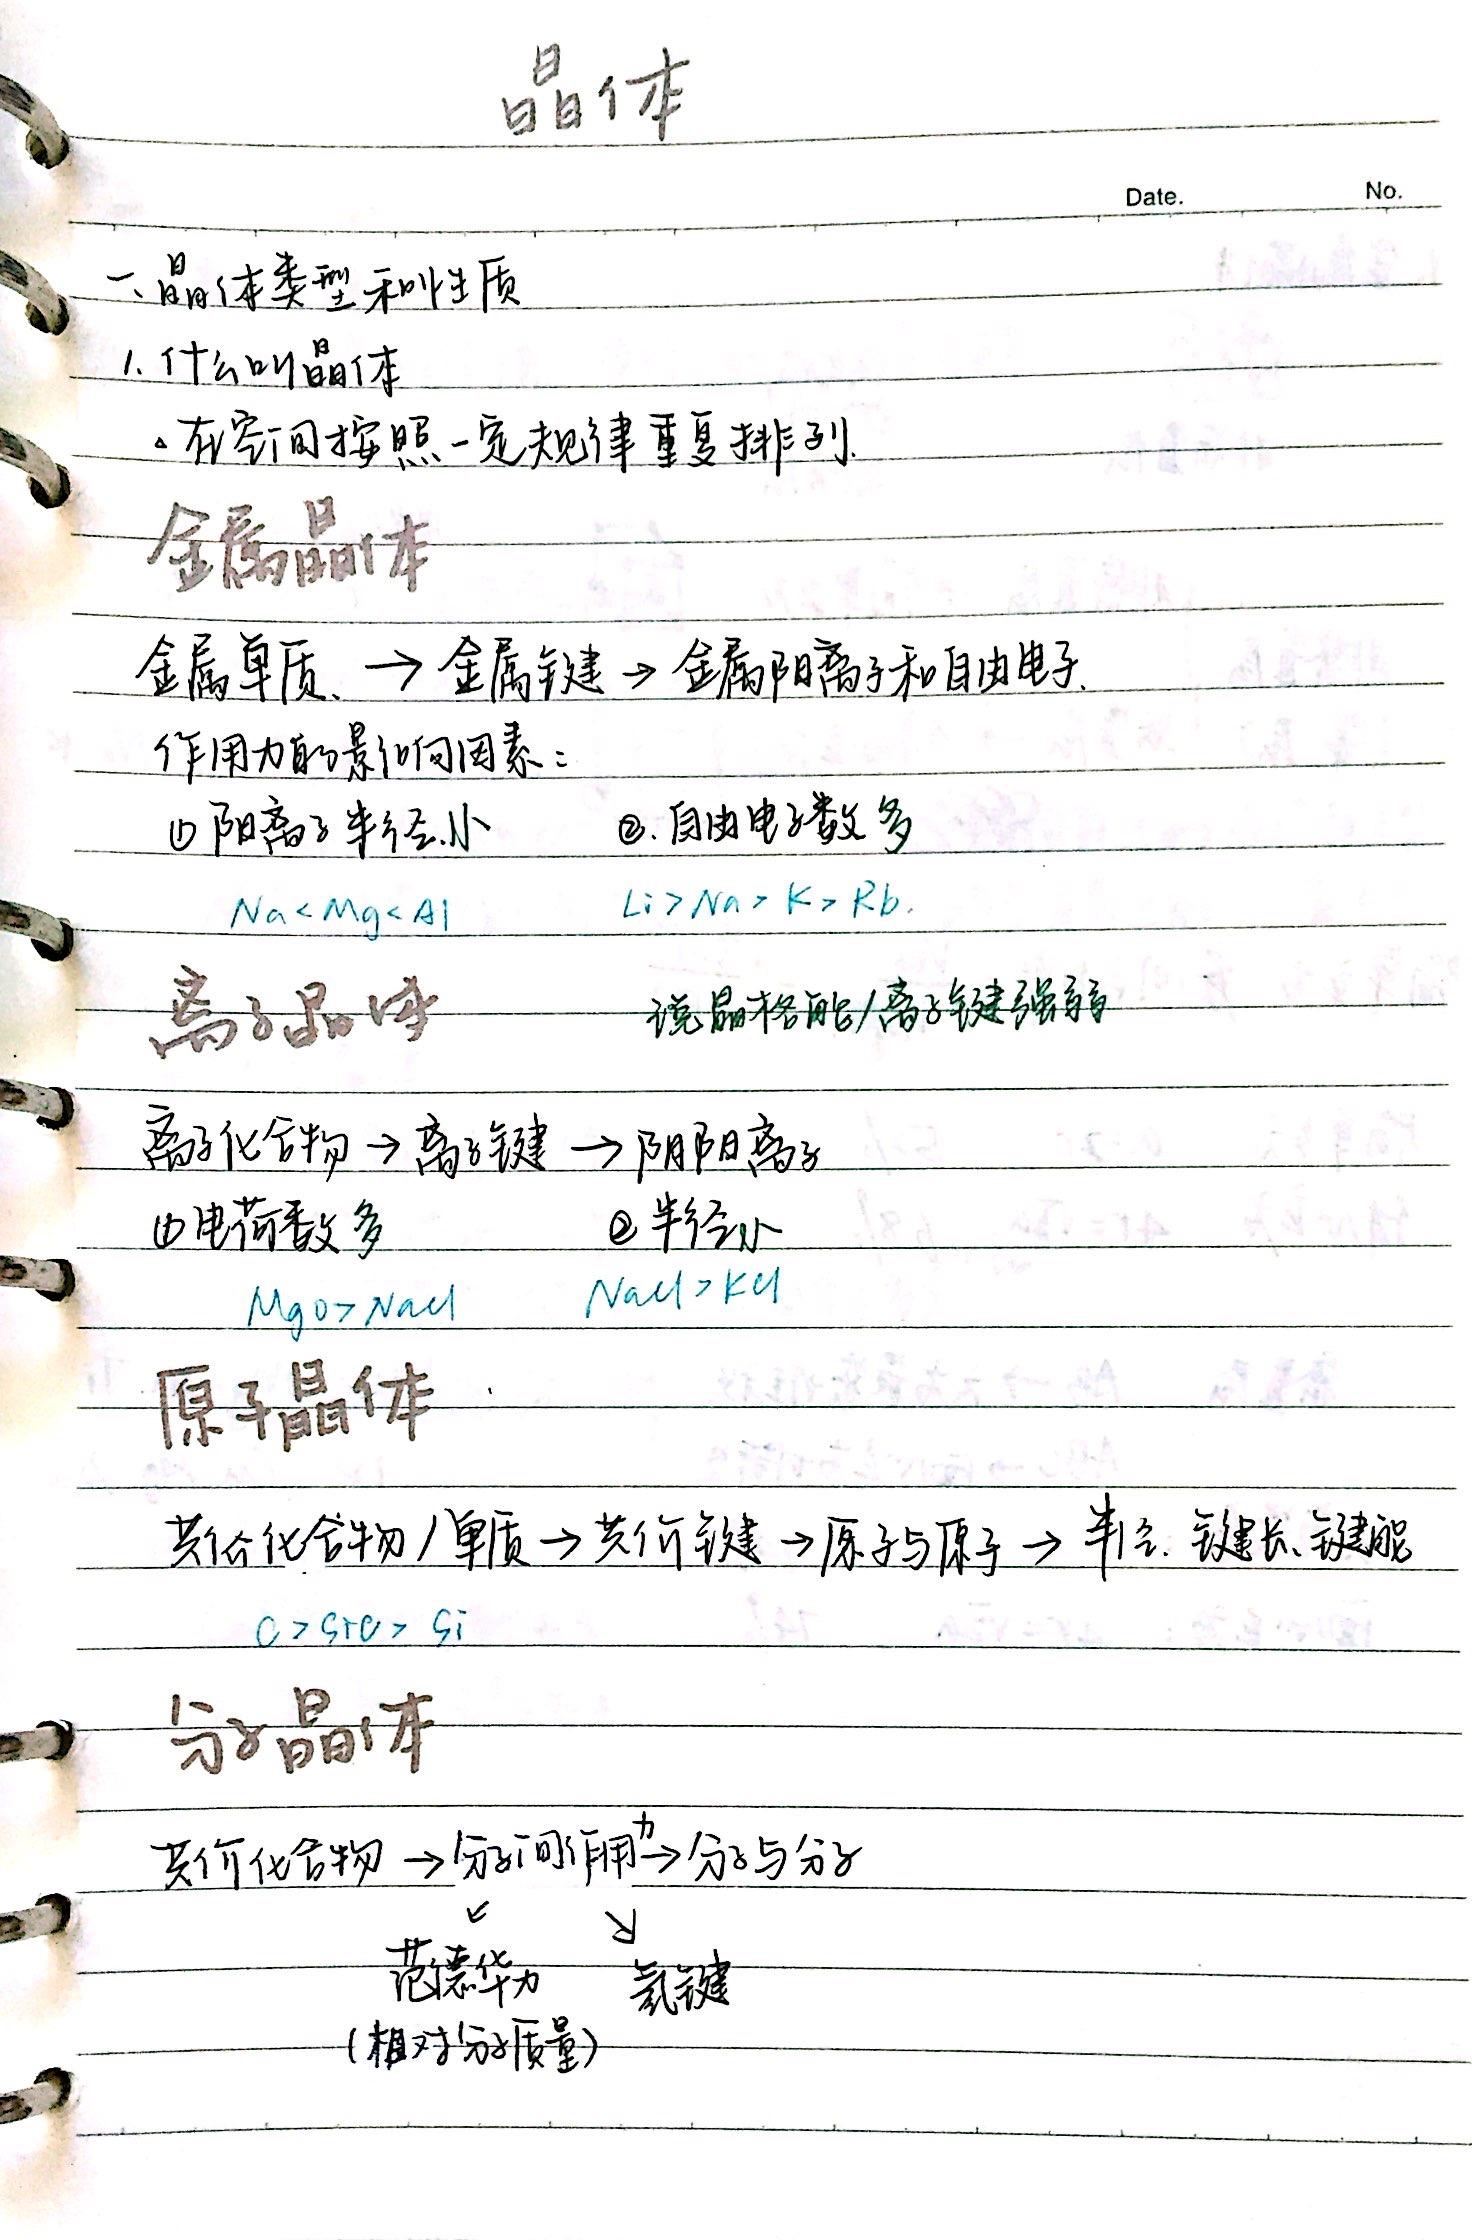 晶体
Date. No.
一、晶体类型和性质
1. 什么叫晶体
△ 在空间按照一定规律重复排列.
金属晶体
金属单质、→ 金属键 → 金属阳离子和自由电子.
作用力的影响因素:
① 阳离子半径小 ②. 自由电子数多
Na < Mg < Al Li > Na > K > Rb.
离子晶体 说晶格能/离子键强弱
离子化合物 → 离子键 → 阴阳离子
① 电荷数多 ② 半径小
MgO > NaCl NaCl > KCl
原子晶体
共价化合物/单质 → 共价键 → 原子与原子 → 半径、键长、键能
C > SiC > Si
分子晶体
共价化合物 → 分子间作用力 → 分子与分子
范德华力 氢键
(相对分子质量)